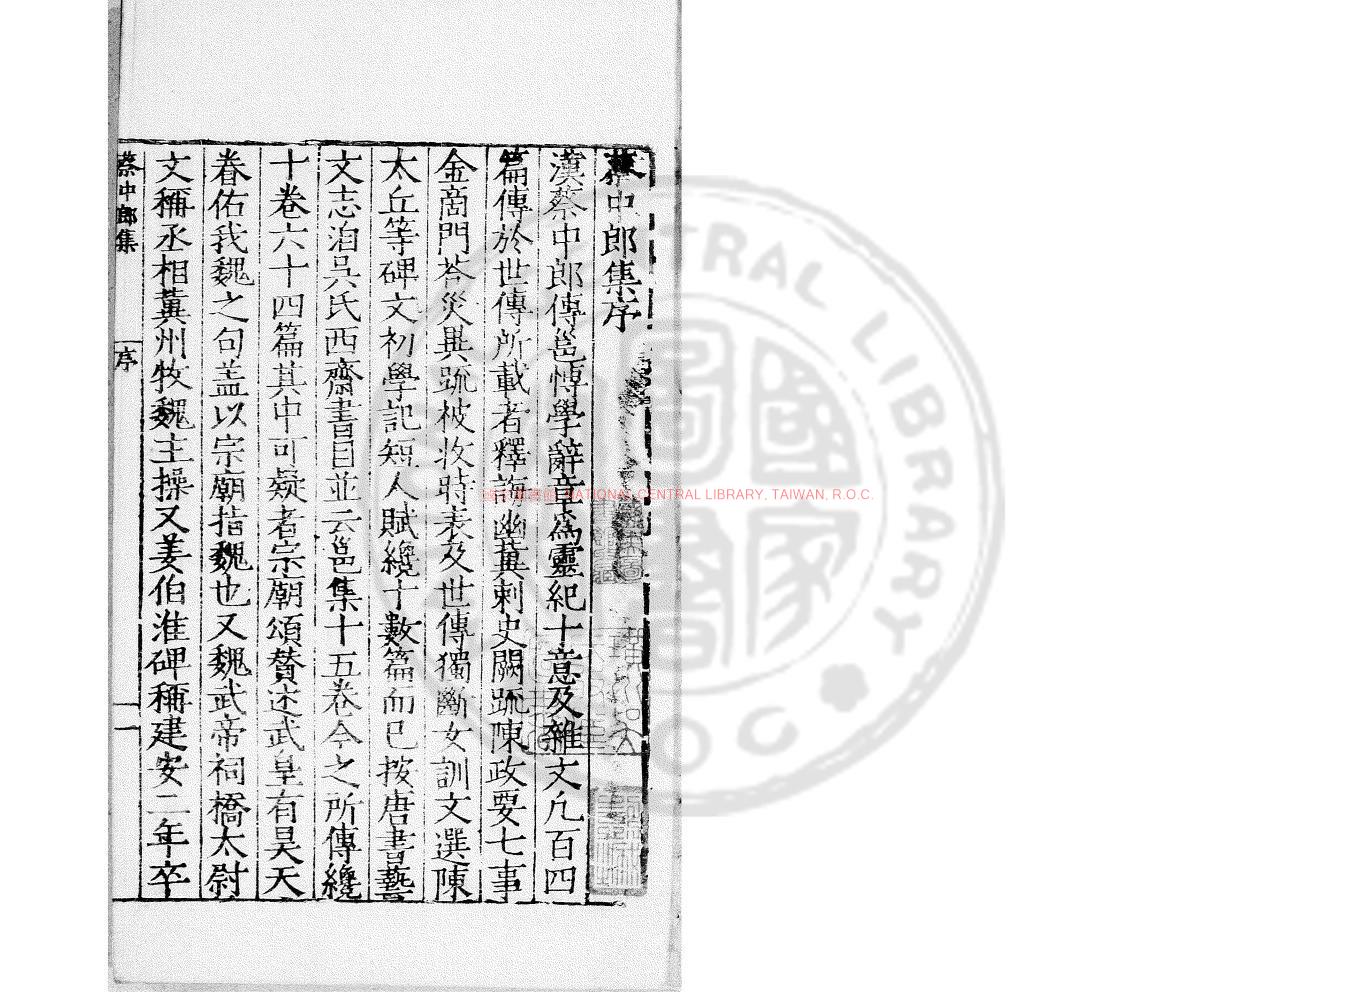 蔡中郎集序
漢蔡中郎傳邕愽學辭章為靈紀十意及雜文凢百四
篇傳於世傳所載者釋誨幽冀刺史闕䟽陳政要七事
金啇門荅災異䟽被收時表及世傳獨斷女訓文選陳
太丘等碑文初學記短人賦纔十數篇而已按唐書藝
文志洎吳氏西齋書目並云邕集十五卷今之所傳纔
十卷六十四篇其中可疑者宗廟頌賛述武皇有昊天
眷佑我魏之句盖以宗廟指魏也又魏武帝祠橋太尉
文稱丞相冀州牧魏主操又姜伯淮碑稱建安二年卒
蔡中郎集
序
一
NATIONAL CENTRAL LIBRARY, TAIWAN, R.O.C.